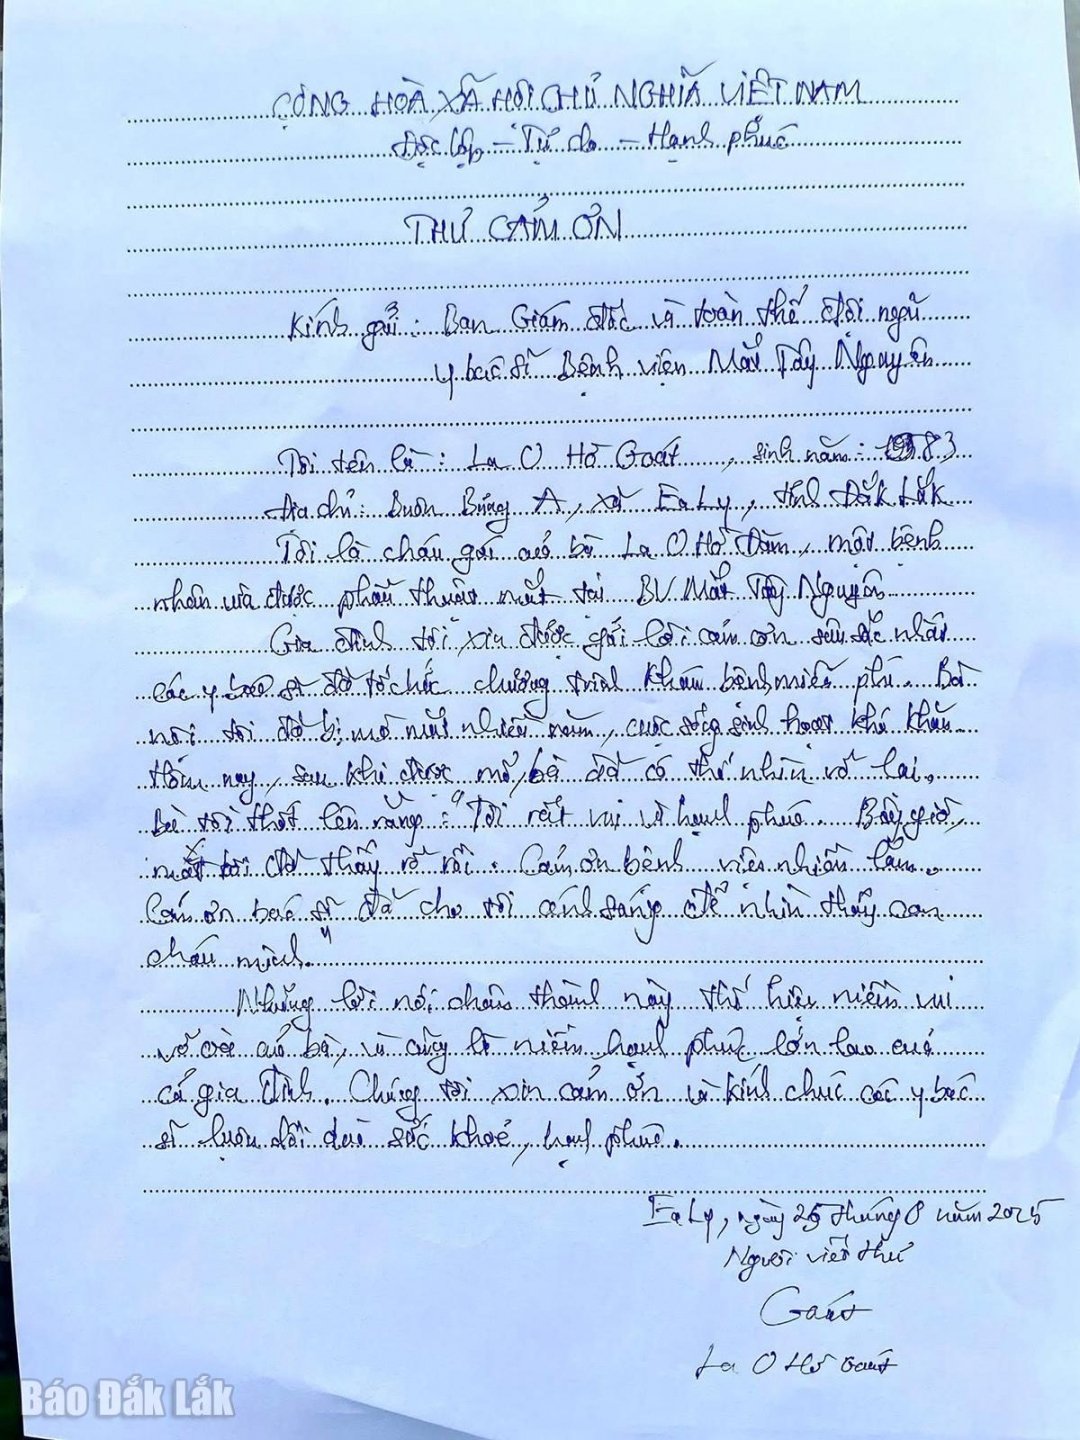 CỘNG HOÀ XÃ HỘI CHỦ NGHĨA VIỆT NAM
Độc lập - Tự do - Hạnh phúc
THƯ CẢM ƠN
Kính gửi: Ban Giám đốc và toàn thể đội ngũ
y bác sĩ Bệnh viện Mắt Tây Nguyên
Tôi tên là: La O Hờ Goát, sinh năm: 1983
Địa chỉ: Buôn Bưng A, xã Ea Ly, tỉnh Đắk Lắk
Tôi là cháu gái của bà La O Hờ Đăm, một bệnh
nhân vừa được phẫu thuật mắt tại BV Mắt Tây Nguyên
Gia đình tôi xin được gửi lời cảm ơn sâu sắc nhất
các y bác sĩ đã tổ chức chương trình khám bệnh miễn phí. Bà
nội tôi đã bị mờ mắt nhiều năm, cuộc sống sinh hoạt khó khăn
Hôm nay, sau khi được mổ, bà đã có thể nhìn rõ lại.
Bà tôi thốt lên rằng: "Tôi rất vui và hạnh phúc. Bây giờ,
mắt tôi đã thấy rõ rồi. Cảm ơn bệnh viện nhiều lắm.
Cảm ơn bác sĩ đã cho tôi ánh sáng để nhìn thấy con
cháu mình."
Những lời nói chân thành này thể hiện niềm vui
vỡ oà của bà, và cũng là niềm hạnh phúc lớn lao của
cả gia đình. Chúng tôi xin cảm ơn và kính chúc các y bác
sĩ luôn dồi dào sức khoẻ, hạnh phúc.
Ea Ly, ngày 25 tháng 8 năm 2025
Người viết thư
Goát
La O Hờ Goát
Báo Đắk Lắk